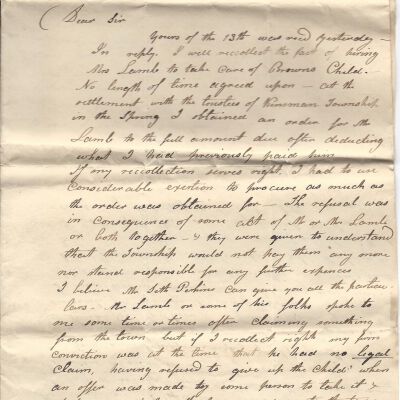 Dear Sir
Yours of the 13th was recd yesterday –
In reply. I well recollect the fact of hiring
Mrs Lamb to take care of Browns Child.
No length of time agreed upon – at the
settlement with the trustees of Kinsman Township
in the Spring I obtained an order for Mr
Lamb to the full amount due after deducting
what I had previously paid him
If my recollection serves right. I had to use
considerable exertion to procure as much as
the order was obtained for – The refusal was
in consequence of some act of Mr or Mrs Lamb
or both together – & they were given to understand
that the Township would not pay them any more
nor stand responsible for any further expences
I believe Mr Seth Perkins can give you all the particu-
lars. Mr Lamb or some of his folks spoke to
me some time or times after claiming something
from the town but if I recollect right my firm
conviction was at the time that he had no legal
Claim, having refused to give up the Child when
an offer was made by some person to take it &